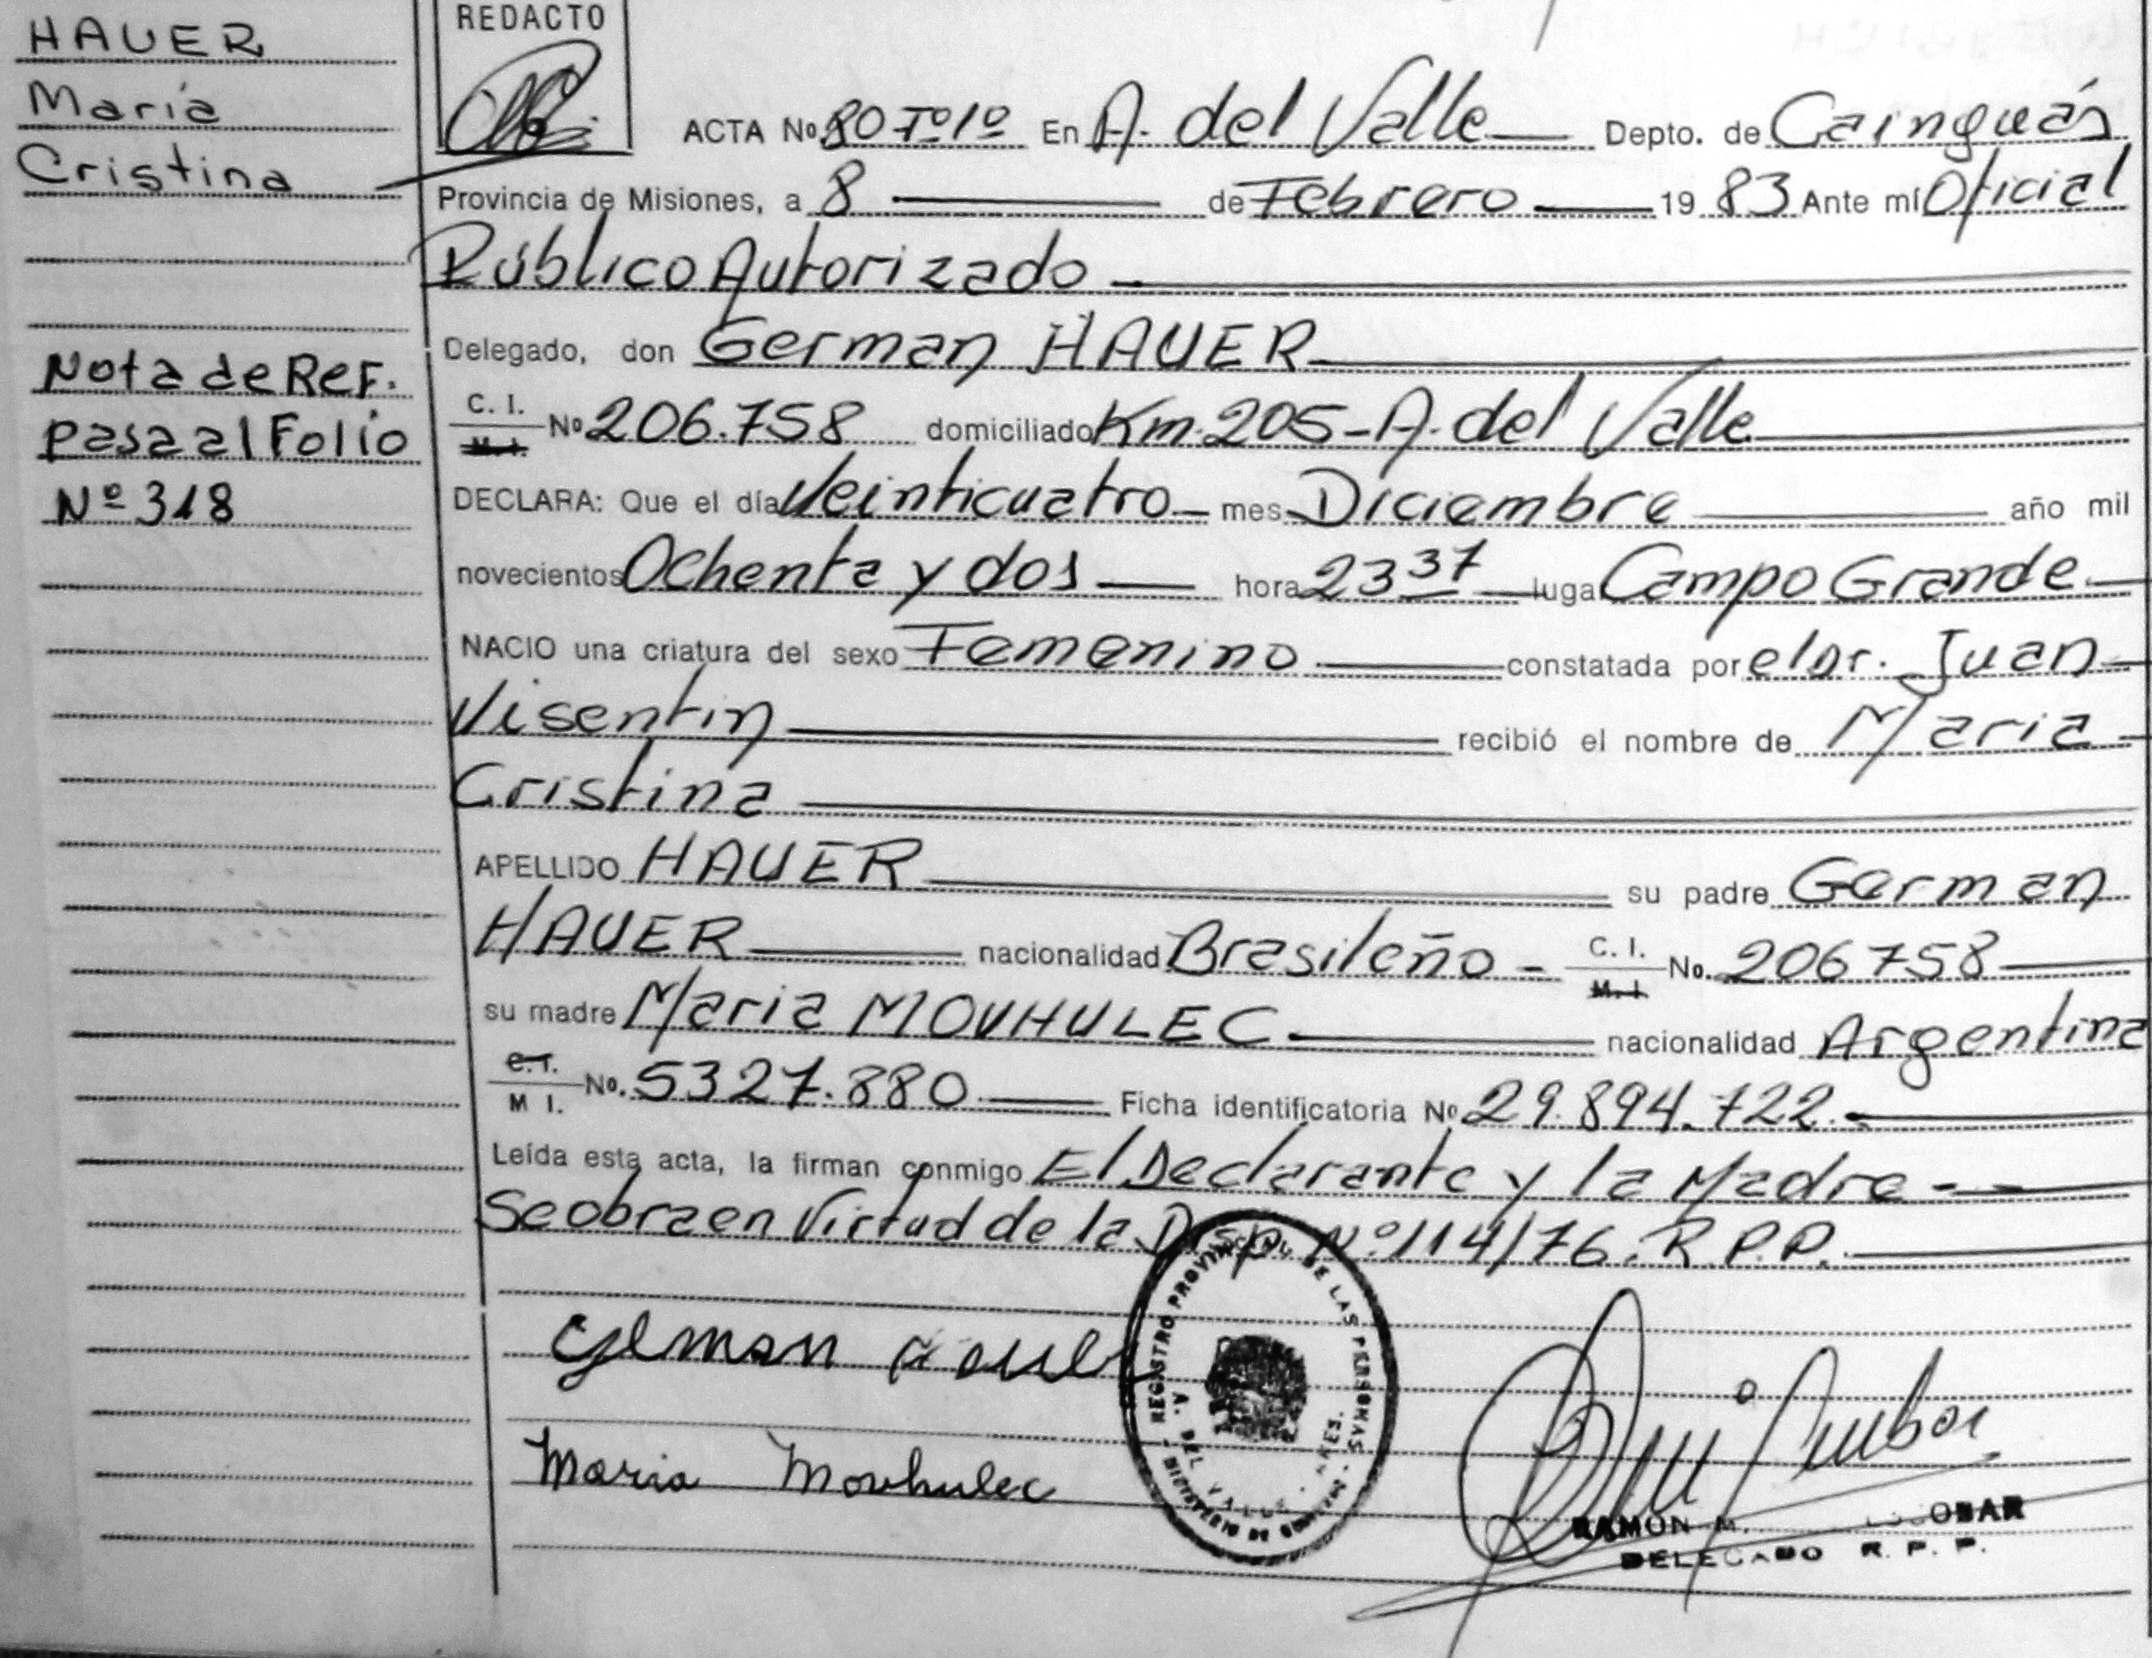 HAUER
María
Cristina
Nota de Ref.
pasa al Folio
Nº 318
REDACTO
ACTA Nº 80 Tº 1º En A. del Valle Depto. de Cainguás
Provincia de Misiones, a 8 de Febrero 1983 Ante mí Oficial
Público Autorizado
Delegado, don German HAUER
C. I. M. I. Nº 206.758 domiciliado Km. 205 - A. del Valle
DECLARA: Que el día Veinticuatro mes Diciembre año mil
novecientos Ochenta y dos hora 23 37 luga Campo Grande
NACIO una criatura del sexo Femenino constatada por el Dr. Juan
Visentin recibió el nombre de Maria
Cristina
APELLIDO HAUER su padre German
HAUER nacionalidad Brasileño - C. I. M. I. No. 206758
su madre Maria MOUHULEC nacionalidad Argentina
C. I. M I. No. 5327.880 Ficha identificatoria Nº 29.894.722.-
Leída esta acta, la firman conmigo El Declarante y la Madre - -
Se obra en Virtud de la Disp. Nº 114/76. R.P.P.
REGISTRO PROVINCIAL DE LAS PERSONAS
A. DEL VALLE - MNES.
MINISTERIO DE GOBIERNO
German Hauer
Maria Mouhulec
RAMON M. ESCOBAR
DELEGADO R. P. P.